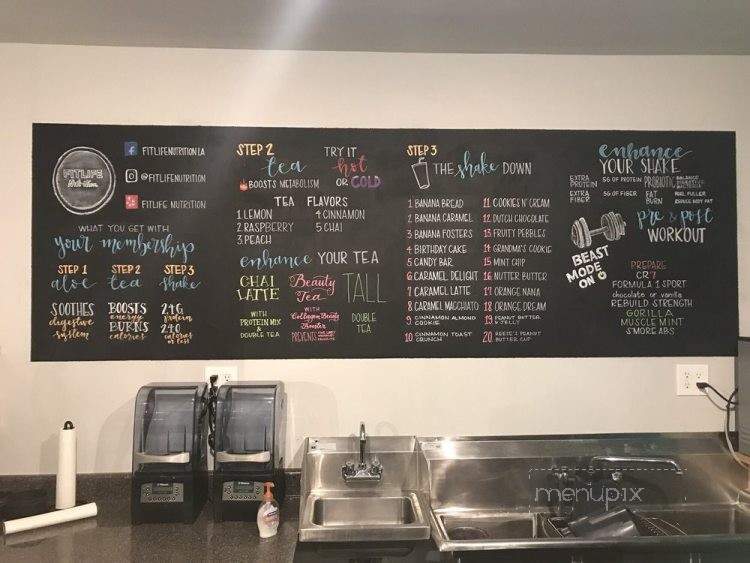 FITLIFE
Nutrition
FITLIFENUTRITIONLA
@FITLIFENUTRITION
FITLIFE NUTRITION
WHAT YOU GET WITH
your membership
STEP 1
aloe
SOOTHES
digestive
system
STEP 2
tea
BOOSTS
energy
BURNS
calories
STEP 3
shake
24G
protein
240
calories
or less
STEP 2
tea
BOOSTS METABOLISM
TRY IT
hot
OR COLD
TEA FLAVORS
1 LEMON
2 RASPBERRY
3 PEACH
4 CINNAMON
5 CHAI
enhance YOUR TEA
CHAI
LATTE
WITH
PROTEIN MIX
&
DOUBLE TEA
Beauty
Tea
WITH
Collagen Beauty
Booster
PREVENTS
TALL
DOUBLE
TEA
STEP 3
THE shake DOWN
1 BANANA BREAD
2 BANANA CARAMEL
3 BANANA FOSTERS
4 BIRTHDAY CAKE
5 CANDY BAR
6 CARAMEL DELIGHT
7 CARAMEL LATTE
8 CARAMEL MACCHIATO
9 CINNAMON ALMOND
COOKIE
10 CINNAMON TOAST
CRUNCH
11 COOKIES N' CREAM
12 DUTCH CHOCOLATE
13 FRUITY PEBBLES
14 GRANDMA'S COOKIE
15 MINT CHIP
16 NUTTER BUTTER
17 ORANGE NANA
18 ORANGE DREAM
19 PEANUT BUTTER
& JELLY
20 REESE'S PEANUT
BUTTER CUP
enhance
YOUR SHAKE
EXTRA
PROTEIN
5G OF PROTEIN
EXTRA
FIBER
5G OF FIBER
PROBIOTIC
BALANCE
DIGESTIVE
FAT
BURN
FEEL FULLER
REDUCE BODY FAT
BEAST
MODE
ON
pre & post
WORKOUT
PREPARE
CR7
FORMULA 1 SPORT
chocolate or vanilla
REBUILD STRENGTH
GORILLA
MUSCLE MINT
S'MORE ABS
menupix